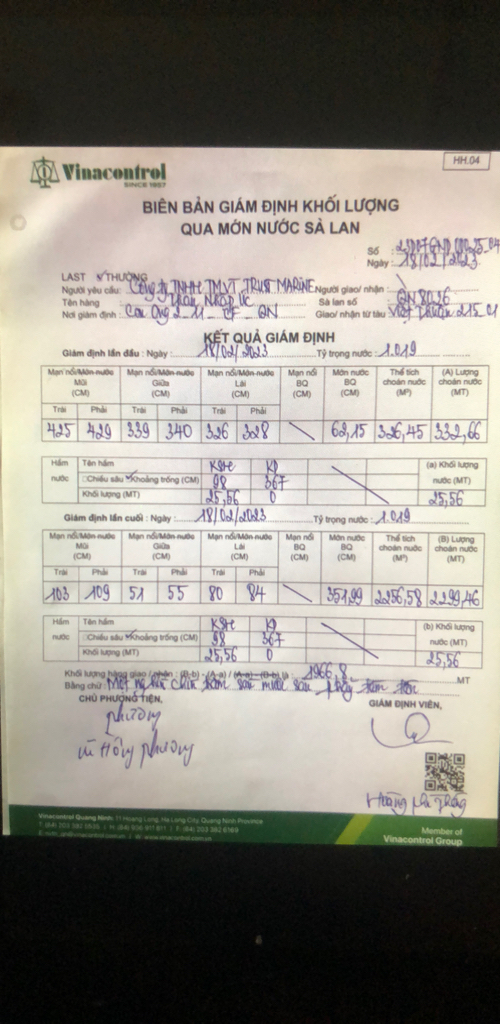 HH.04
Vinacontrol
SINCE 1957
BIÊN BẢN GIÁM ĐỊNH KHỐI LƯỢNG
QUA MỚN NƯỚC SÀ LAN
Số
Ngày : 18/02/2023
LAST THƯỜNG
Người yêu cầu: Công ty TNHH TMVT TRUST MARINE Người giao/ nhận :
Tên hàng : Than Nhập VC Sà lan số : QN 8036
Nơi giám định : Con Ong 2-11-CF-QN Giao/ nhận từ tàu : Việt Thuận 215-01
KẾT QUẢ GIÁM ĐỊNH
Giám định lần đầu : Ngày : 18/02/2023 Tỷ trọng nước : 1.019
Mạn nổi/Mớn nước Mũi (CM) Mạn nổi/Mớn nước Giữa (CM) Mạn nổi/Mớn nước Lái (CM) Mạn nổi BQ (CM) Mớn nước BQ (CM) Thể tích choán nước (M³) (A) Lượng choán nước (MT)
Trái Phải Trái Phải Trái Phải
425 429 339 340 326 328 62,15 326,45 332,66
Hầm nước Tên hầm (a) Khối lượng nước (MT)
Chiều sâu Khoảng trống (CM) 98 367
Khối lượng (MT) 25,56 0 25,56
Giám định lần cuối : Ngày : 18/02/2023 Tỷ trọng nước : 1.019
Mạn nổi/Mớn nước Mũi (CM) Mạn nổi/Mớn nước Giữa (CM) Mạn nổi/Mớn nước Lái (CM) Mạn nổi BQ (CM) Mớn nước BQ (CM) Thể tích choán nước (M³) (B) Lượng choán nước (MT)
Trái Phải Trái Phải Trái Phải
103 109 51 55 80 84 351,99 2256,58 2299,46
Hầm nước Tên hầm (b) Khối lượng nước (MT)
Chiều sâu Khoảng trống (CM) 98 367
Khối lượng (MT) 25,56 0 25,56
Khối lượng hàng giao / nhận : (B-b) - (A-a) / (A-a) - (B-b) là : 1966,8 MT
Bằng chữ : Một nghìn chín trăm sáu mươi sáu phẩy tám tấn
CHỦ PHƯƠNG TIỆN, GIÁM ĐỊNH VIÊN,
Phương
Vũ Hồng Phương
Vinacontrol Quảng Ninh: 11 Hoang Long, Ha Long City, Quang Ninh Province
Member of
Vinacontrol Group